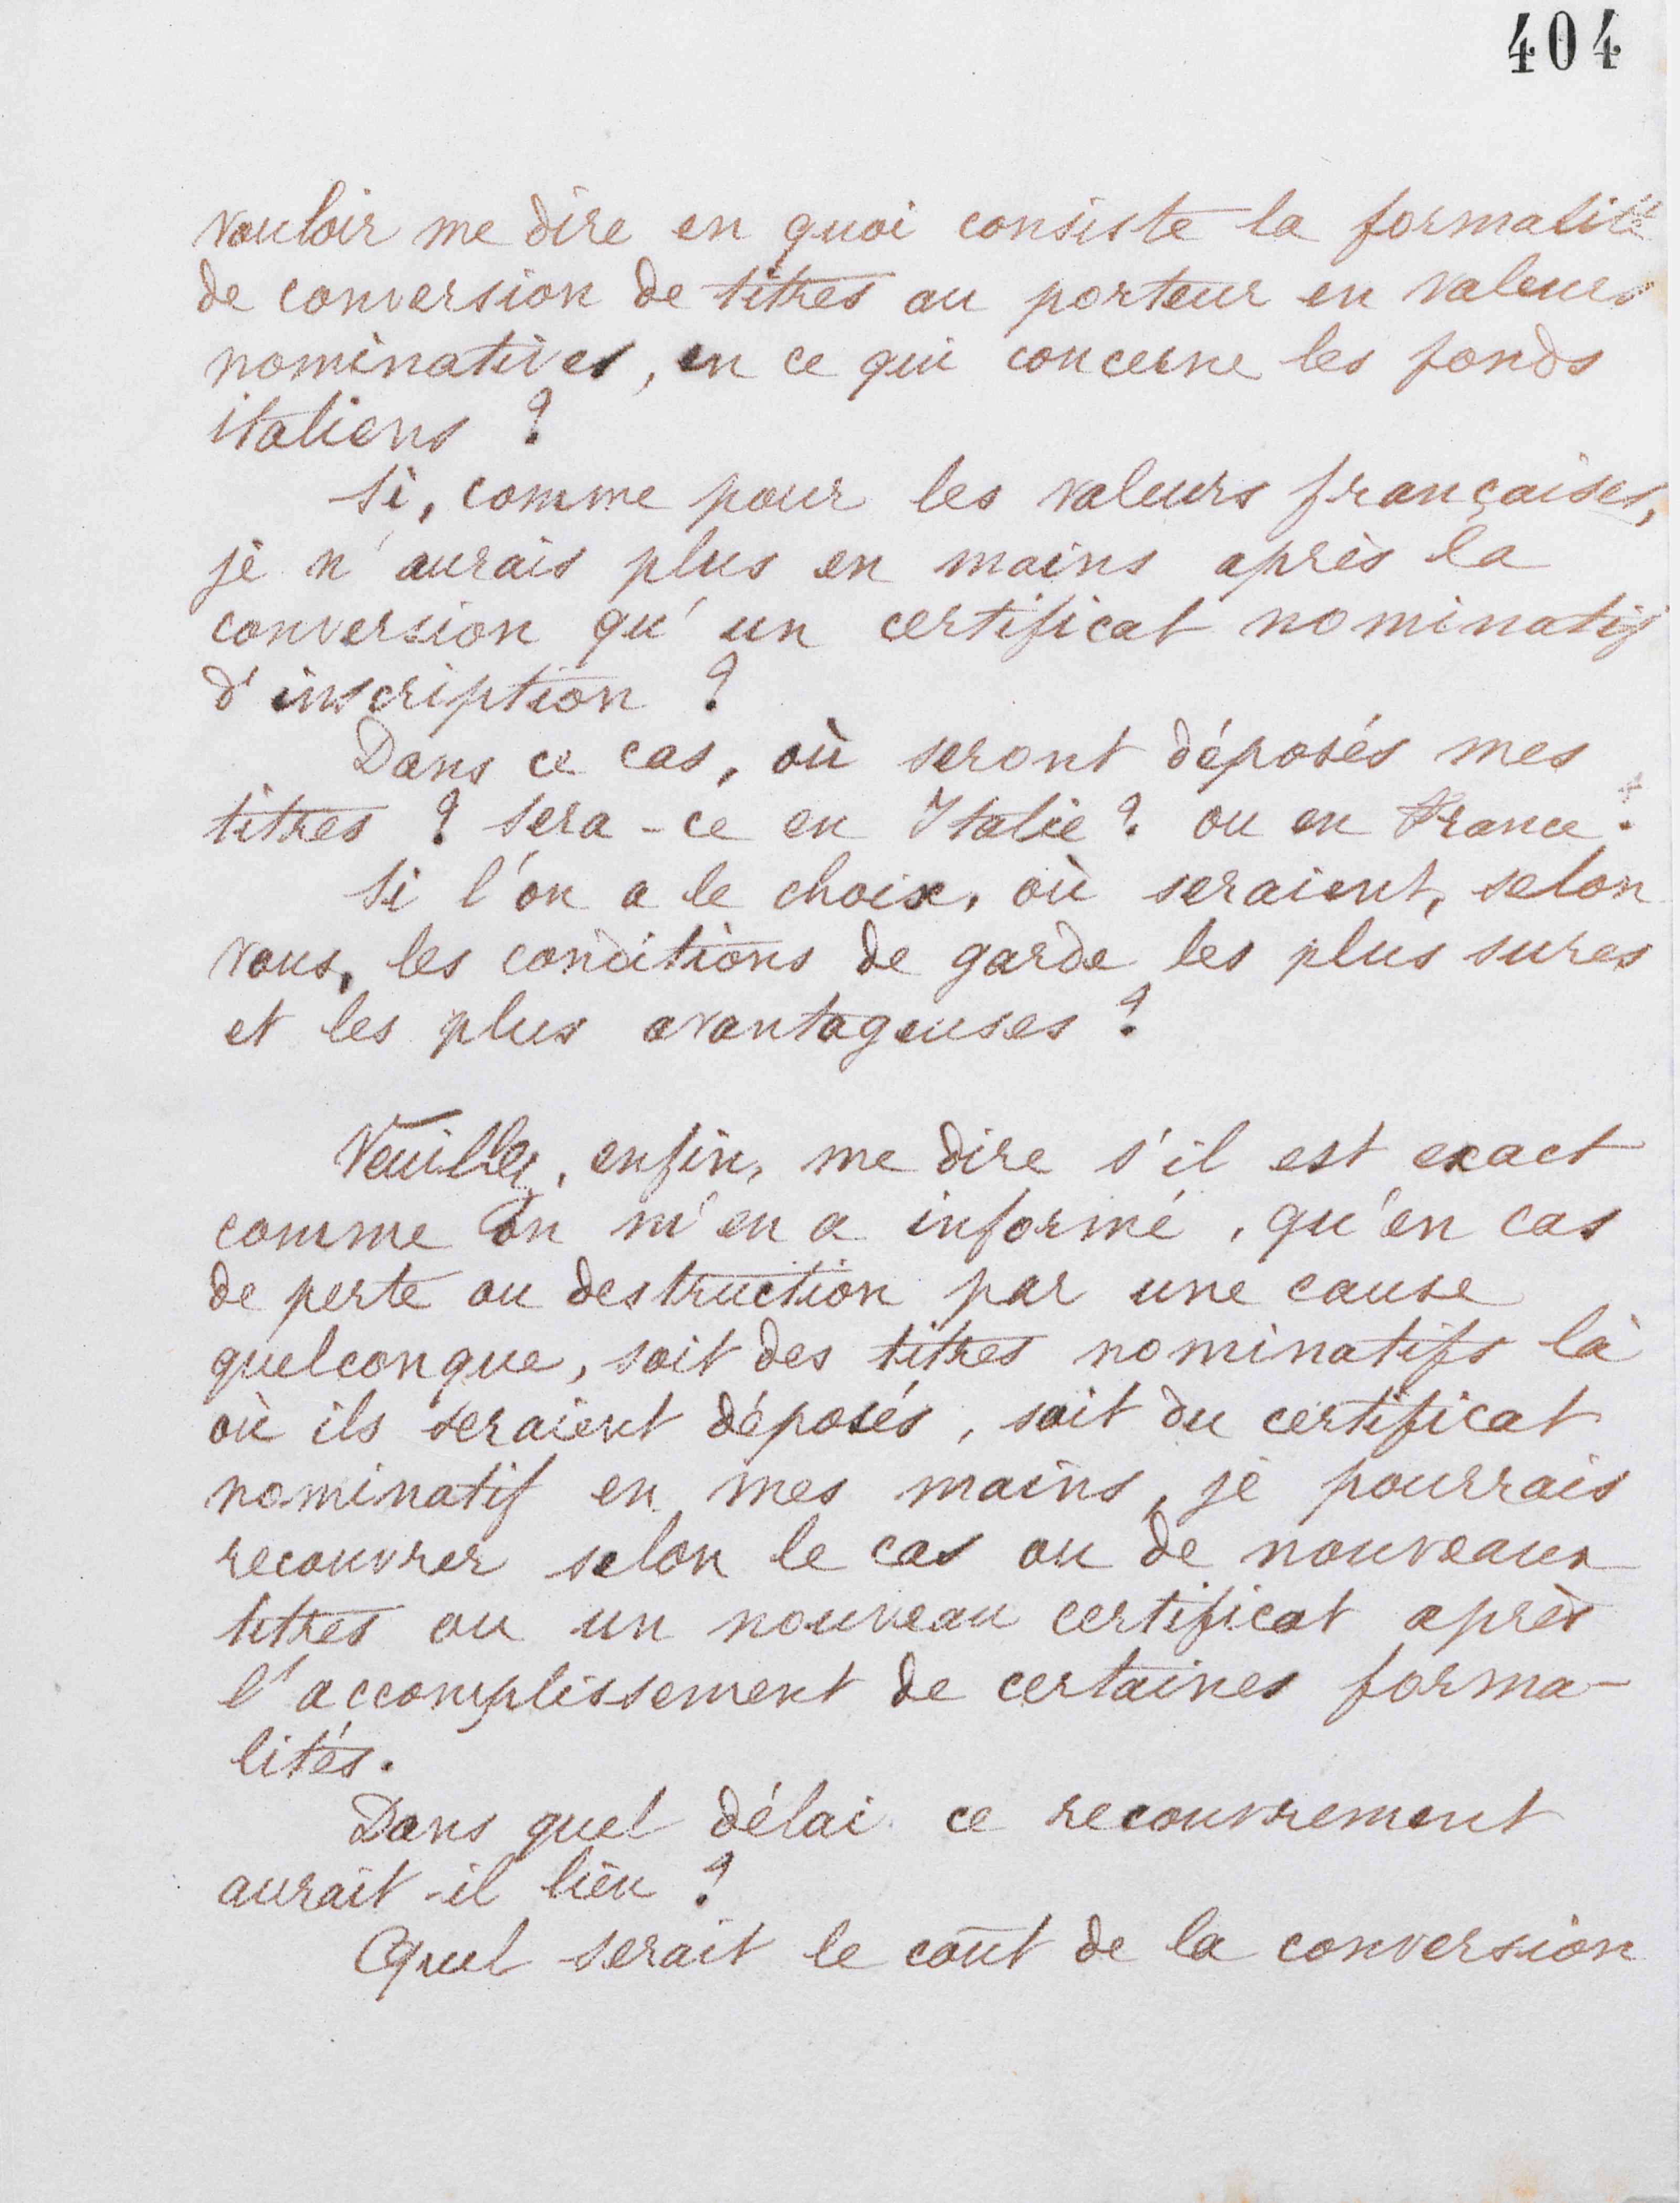 404
vouloir me dire en quoi consiste la formalité
de conversion de titres au porteur en valeurs
nominatives, en ce qui concerne les fonds
italiens ?
Si, comme pour les valeurs françaises,
je n'aurais plus en mains après la
conversion qu'un certificat nominatif
d'inscription ?
Dans ce cas, où seront déposés mes
titres ? Sera-ce en Italie ? ou en France ?
Si l'on a le choix, où seraient, selon
vous, les conditions de garde les plus sures
et les plus avantageuses ?
Veuillez, enfin, me dire s'il est exact
comme on m'en a informé, qu'en cas
de perte ou destruction par une cause
quelconque, soit des titres nominatifs là
où ils seraient déposés, soit du certificat
nominatif en mes mains, je pourrais
recouvrer selon le cas ou de nouveaux
titres ou un nouveau certificat après
l'accomplissement de certaines forma-
lités.
Dans quel délai ce recouvrement
aurait-il lieu ?
Quel serait le coût de la conversion